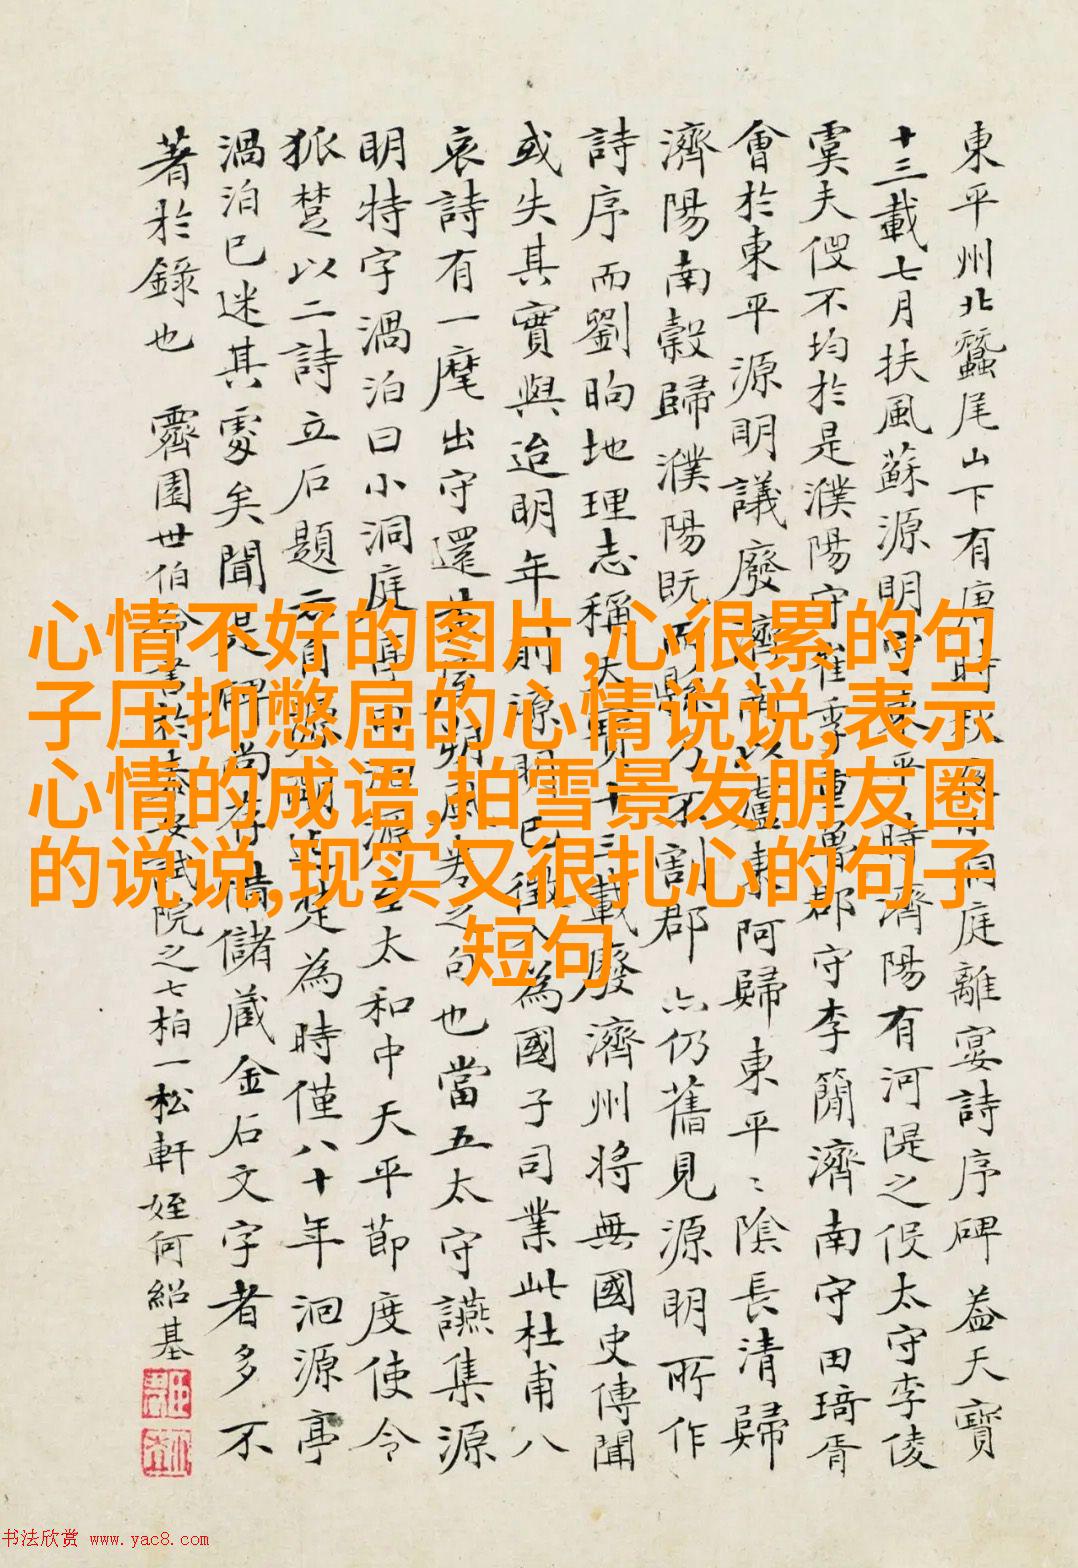 東平州北蠶尾山下有唐時
洞庭離宴詩序碑 蓋天寶
十三載七月扶風蘇源明守東平時濟陽有河隄之役太守李倰
虞夫役不均於是濮陽守崔季重魯郡守李簡濟南守田琦胥
會於東平源明議廢濟陽以盧東阿歸東平二陰長清歸
濟陽南穀歸濮陽既而縣乃不割郡亦仍舊見源明所作
詩序而劉昫地理志稱天寶十三載廢濟州將無國史傳聞
或失其實與迨明年前源明已徵入為國子司業此杜甫八
哀詩有一麾出守還之句也當五太守讌集源
明特字渦泊曰小洞庭太和中天平節度使令
狐楚以二詩立石題二月為時僅八十年洄源亭
渦泊已迷其處矣聞是碑尚存儲藏金石文字者多不
著於錄也 霽園世伯 院之七柏一松軒 姪何紹基
心情不好的图片,心很累的句
子压抑憋屈的心情说说,表示
心情的成语,拍雪景发朋友圈
的说说,现实又很扎心的句子
短句
书法欣赏 www.yac8.com